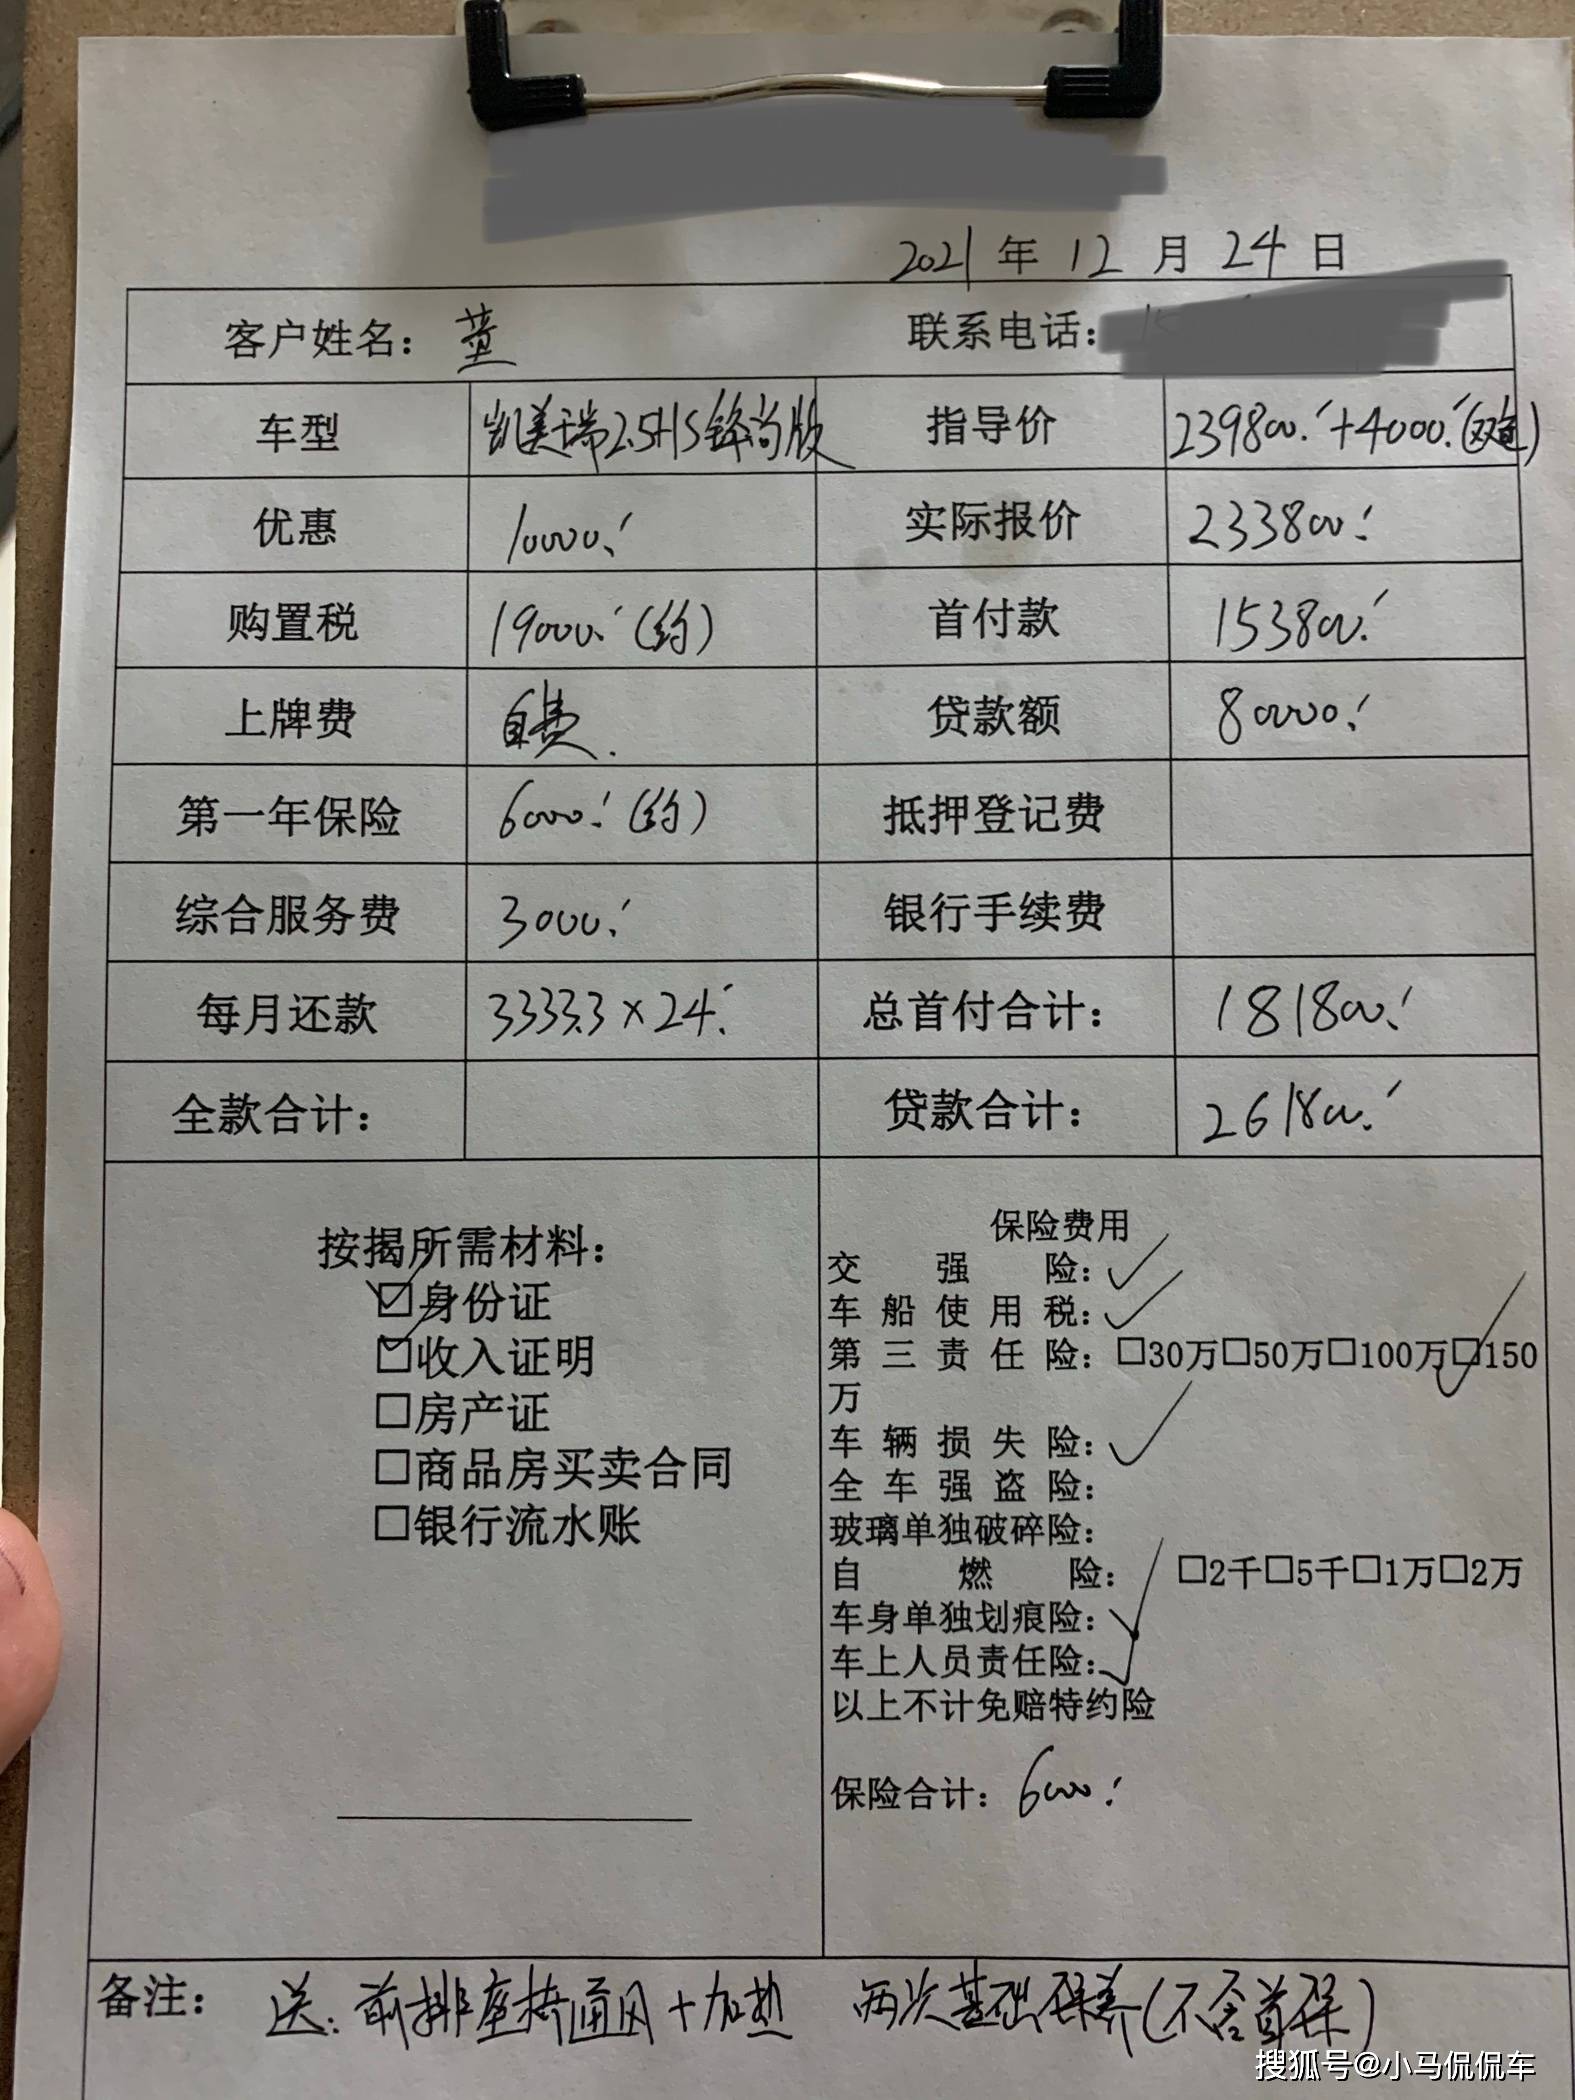 2021 年 12 月 24 日
客户姓名： 董 联系电话：
车型 凯美瑞2.5HS锋尚版 指导价 239800.+4000.(双色)
优惠 10000. 实际报价 233800.
购置税 19000.(约) 首付款 153800.
上牌费 自费. 贷款额 80000.
第一年保险 6000.(约) 抵押登记费
综合服务费 3000. 银行手续费
每月还款 3333.3×24. 总首付合计： 181800.
全款合计： 贷款合计： 261800.
按揭所需材料：
☑身份证
☑收入证明
□房产证
□商品房买卖合同
□银行流水账
保险费用
交强险：✓
车船使用税：✓
第三责任险：□30万□50万□100万☑150
万
车辆损失险：✓
全车强盗险：
玻璃单独破碎险：
自燃险： □2千□5千□1万□2万
车身单独划痕险：
车上人员责任险：✓
以上不计免赔特约险
保险合计：6000.
备注： 送：前排座椅通风+加热 两次基础保养(不含首保)
搜狐号@小马侃侃车